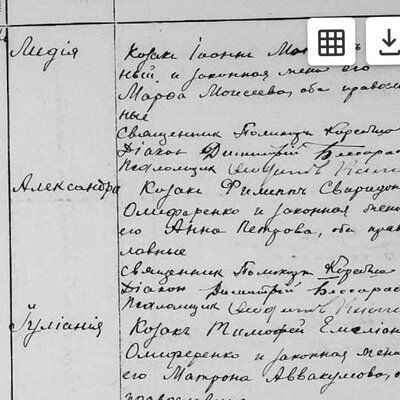 Лидія
Козакъ Іоаннъ
ный и законная жена его
Марфа Моисеева, оба правосла
ные
Священник Поликарп
Діакон Димитрій Бессараб
Псаломщик
Александра
Козакъ Филиппъ Свиридон
Олифаренко и законная жена
его Анна Петрова, оба прав
лавные
Священник Поликарп
Діакон Димитрій Бессараб
Псаломщик
Іуліанія
Козакъ Тимофей Емеліан
Олиференко и законная жена
его Матрона Аввакумова, о
православные